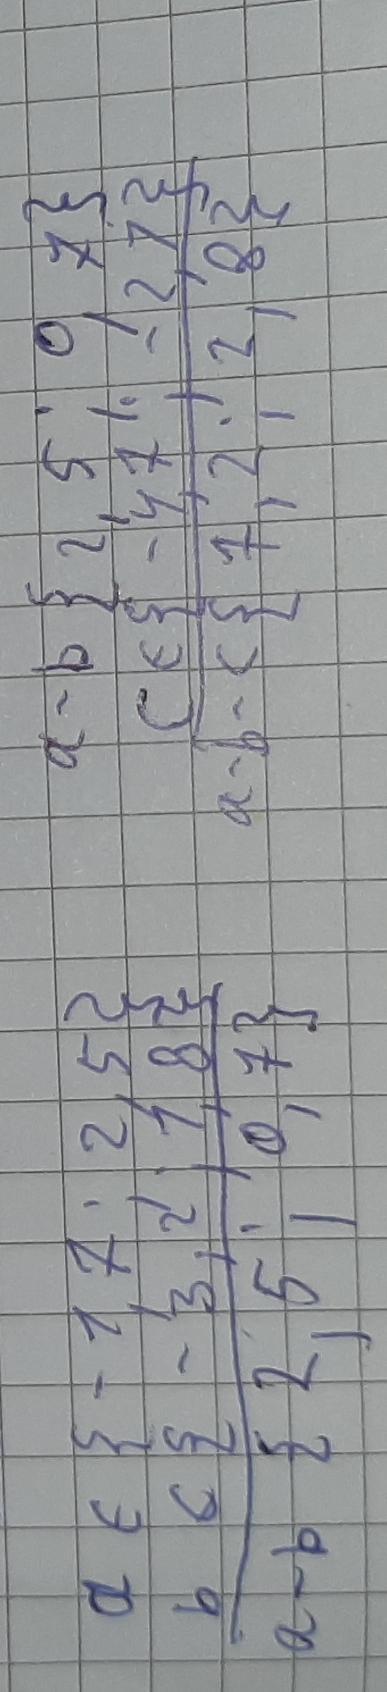 a ε {-1, 7, 2, 5}
b ε {-3, 2, 1, 8}
a-b {2, 5, 0, 7}
a-b {2, 5, 0, 7}
C ε {-4, 7, -2, 7}
a-b-c {7, 2, 2, 8}